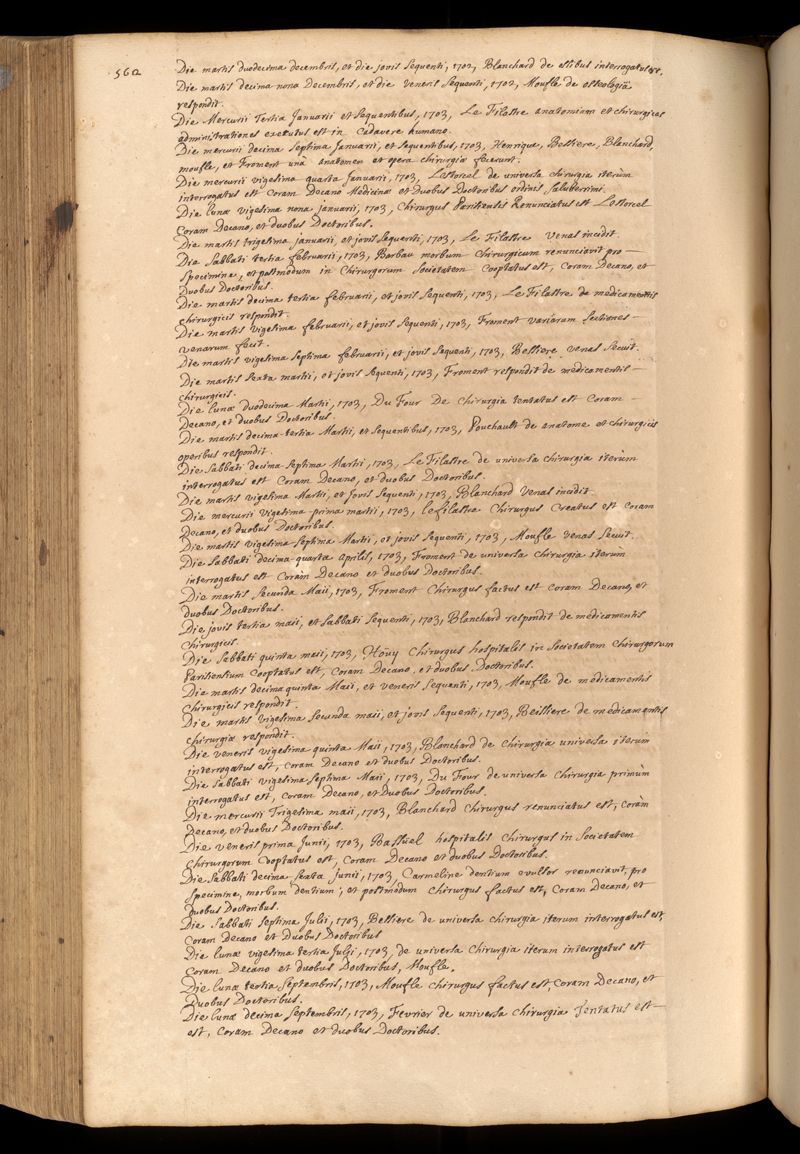 562
Die martis duodecima decembris, et die jovis sequenti, 1702, Blanchard de ossibus interrogatus est.
Die martis decima nona Decembris, et die veneris sequenti, 1702, Moufle de osteologiâ
respondit.
Die Mercurii Tertia Januarii et sequentibus, 1703, Le Filastre anatomicas et chirurgicas
administrationes executus est in Cadavere humano.
Die mercurii decima septima Januarii, et sequentibus, 1703, Henrique, Bessiere, Blanchard,
moufle, et Froment unà anatomen et opera chirurgiæ fecerunt.
Die mercurii vigesima quarta Januarii, 1703, Lestorcel de universa chirurgia iterùm
interrogatus est Coram Decano Medicinæ et Duobus Doctoribus ordinis saluberrimi.
Die lunæ vigesima nona januarii, 1703, Chirurgus Parisiensis Renunciatus est Lestorcel
Coram Decano, et duobus Doctoribus.
Die martis trigesima januarii, et jovis sequenti, 1703, Le Filastre venas incidit.
Die Sabbati tertia februarii, 1703, Barbau morbum chirurgicum renunciavit pro —
specimine, et postmodum in Chirurgorum societatem Cooptatus est, Coram Decano, et
Duobus Doctoribus.
Die martis decima tertia februarii, et jovis sequenti, 1703, Le Filastre de medicamentis
chirurgicis respondit.
Die martis vigesima februarii, et jovis sequenti, 1703, Froment variarum sectiones —
venarum fecit.
Die martis vigesima septima februarii, et jovis sequenti, 1703, Bessiere venas secuit.
Die martis sexta martii, et jovis sequenti, 1703, Froment respondit de medicamentis —
chirurgicis.
Die lunæ duodecima Martii, 1703, Du Four De Chirurgia tentatus est Coram —
Decano, et duobus Doctoribus.
Die martis decima-tertia Martii, et sequentibus, 1703, Pouchault de anatome et chirurgicis
operibus respondit.
Die Sabbati decima septima Martii, 1703, Le Filastre de universa chirurgia iterùm
interrogatus est Coram Decano, et duobus Doctoribus.
Die martis vigesima Martii, et jovis sequenti, 1703, Blanchard venas incidit.
Die mercurii vigesima-prima martii, 1703, lefilastre Chirurgus Creatus est coram
Decano, et duobus Doctoribus.
Die martis vigesima-septima Martii, et jovis sequenti, 1703, Moufle venas secuit.
Die Sabbati decima-quarta Aprilis, 1703, Froment de universa chirurgia iterùm
interrogatus est Coram Decano et duobus Doctoribus.
Die martis secunda Maii, 1703, Froment Chirurgus factus est Coram Decano, et
duobus Doctoribus.
Die jovis tertia maii, et sabbati sequenti, 1703, Blanchard respondit de medicamentis
chirurgicis.
Die Sabbati quinta maii, 1703, Houy Chirurgus hospitalis in Societatem Chirurgorum
Parisiensium Cooptatus est, Coram Decano, et duobus Doctoribus.
Die martis decimaquinta Maii, et veneris sequenti, 1703, Moufle de medicamentis
chirurgicis respondit.
Die martis vigesima secunda maii, et jovis sequenti, 1703, Bessiere de medicamentis
chirurgiæ respondit.
Die veneris vigesima quinta Maii, 1703, Blanchard de Chirurgia universa iterum
interrogatus est, Coram Decano et duobus Doctoribus.
Die Sabbati vigesima septima Maii, 1703, Du Four de universa chirurgia primùm
interrogatus est, Coram Decano, et Duobus Doctoribus.
Die mercurii Trigesima maii, 1703, Blanchard Chirurgus renunciatus est, Coràm
Decano, et duobus Doctoribus.
Die veneris prima Junii, 1703, Bassuel hospitalis chirurgus in Societatem
Chirurgorum Cooptatus est, Coram Decano et duobus Doctoribus.
Die Sabbati decima sexta Junii, 1703, Carmeline dentium evulsor renunciavit, pro
specimine, morbum dentium, et postmodum chirurgus factus est, Coram Decano, et
Duobus Doctoribus.
Die Sabbati septima Julii, 1703, Bessiere de universa chirurgia iterum interrogatus est,
Coram Decano et Duobus Doctoribus
Die lunæ vigesima tertia Julii, 1703, de universa Chirurgia iterum interrogatus est
Coram Decano et duobus Doctoribus, Moufle.
Die lunæ tertia septembris, 1703, Moufle chirurgus factus est Coram Decano, et
Duobus Doctoribus.
Die lunæ decima septembris, 1703, Fevrier de universa chirurgia Tentatus est —
est, Coram Decano et duobus Doctoribus.